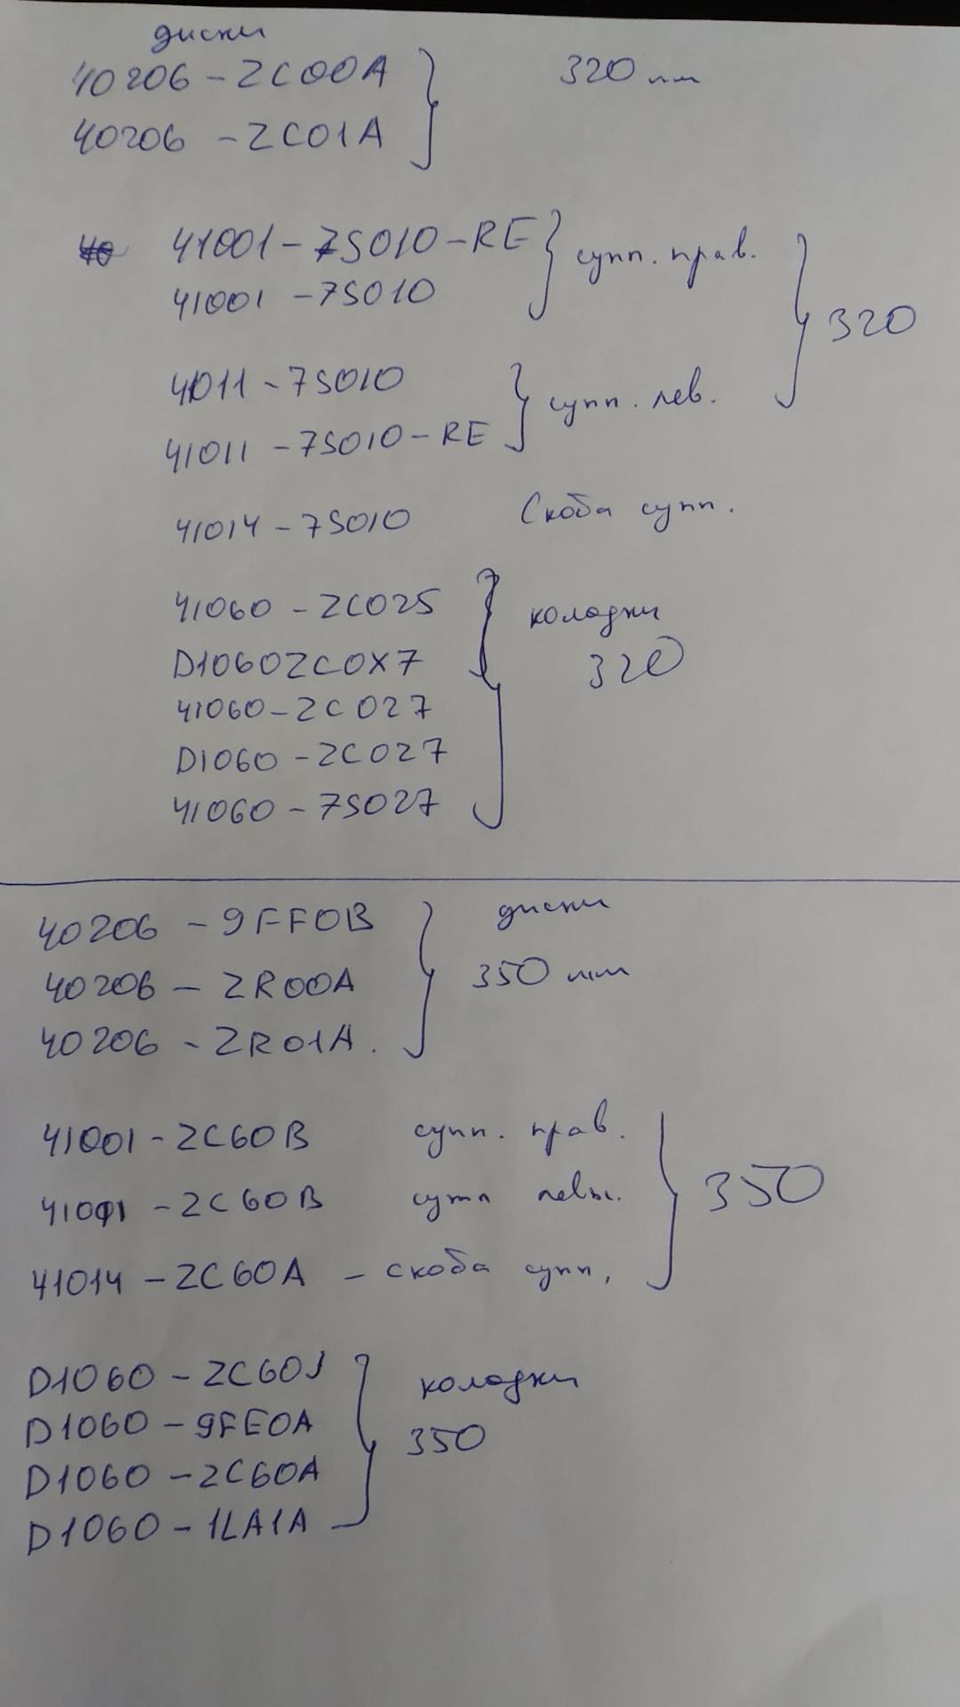 диски
40206 - ZC00A 320 мм
40206 - ZC01A
41001 - 7S010 - RE супп. прав.
41001 - 7S010
320
41011 - 7S010 супп. лев.
41011 - 7S010 - RE
41014 - 7S010 Скоба супп.
41060 - ZC025 колодки
D1060ZC0X7 320
41060 - ZC027
D1060 - ZC027
41060 - 7S027
40206 - 9FF0B диски
40206 - ZR00A 350 мм
40206 - ZR01A.
41001 - ZC60B супп. прав.
350
41011 - ZC60B супп левы.
41014 - ZC60A - скоба супп,
D1060 - ZC60J колодки
D1060 - 9FE0A 350
D1060 - ZC60A
D1060 - 1LA1A